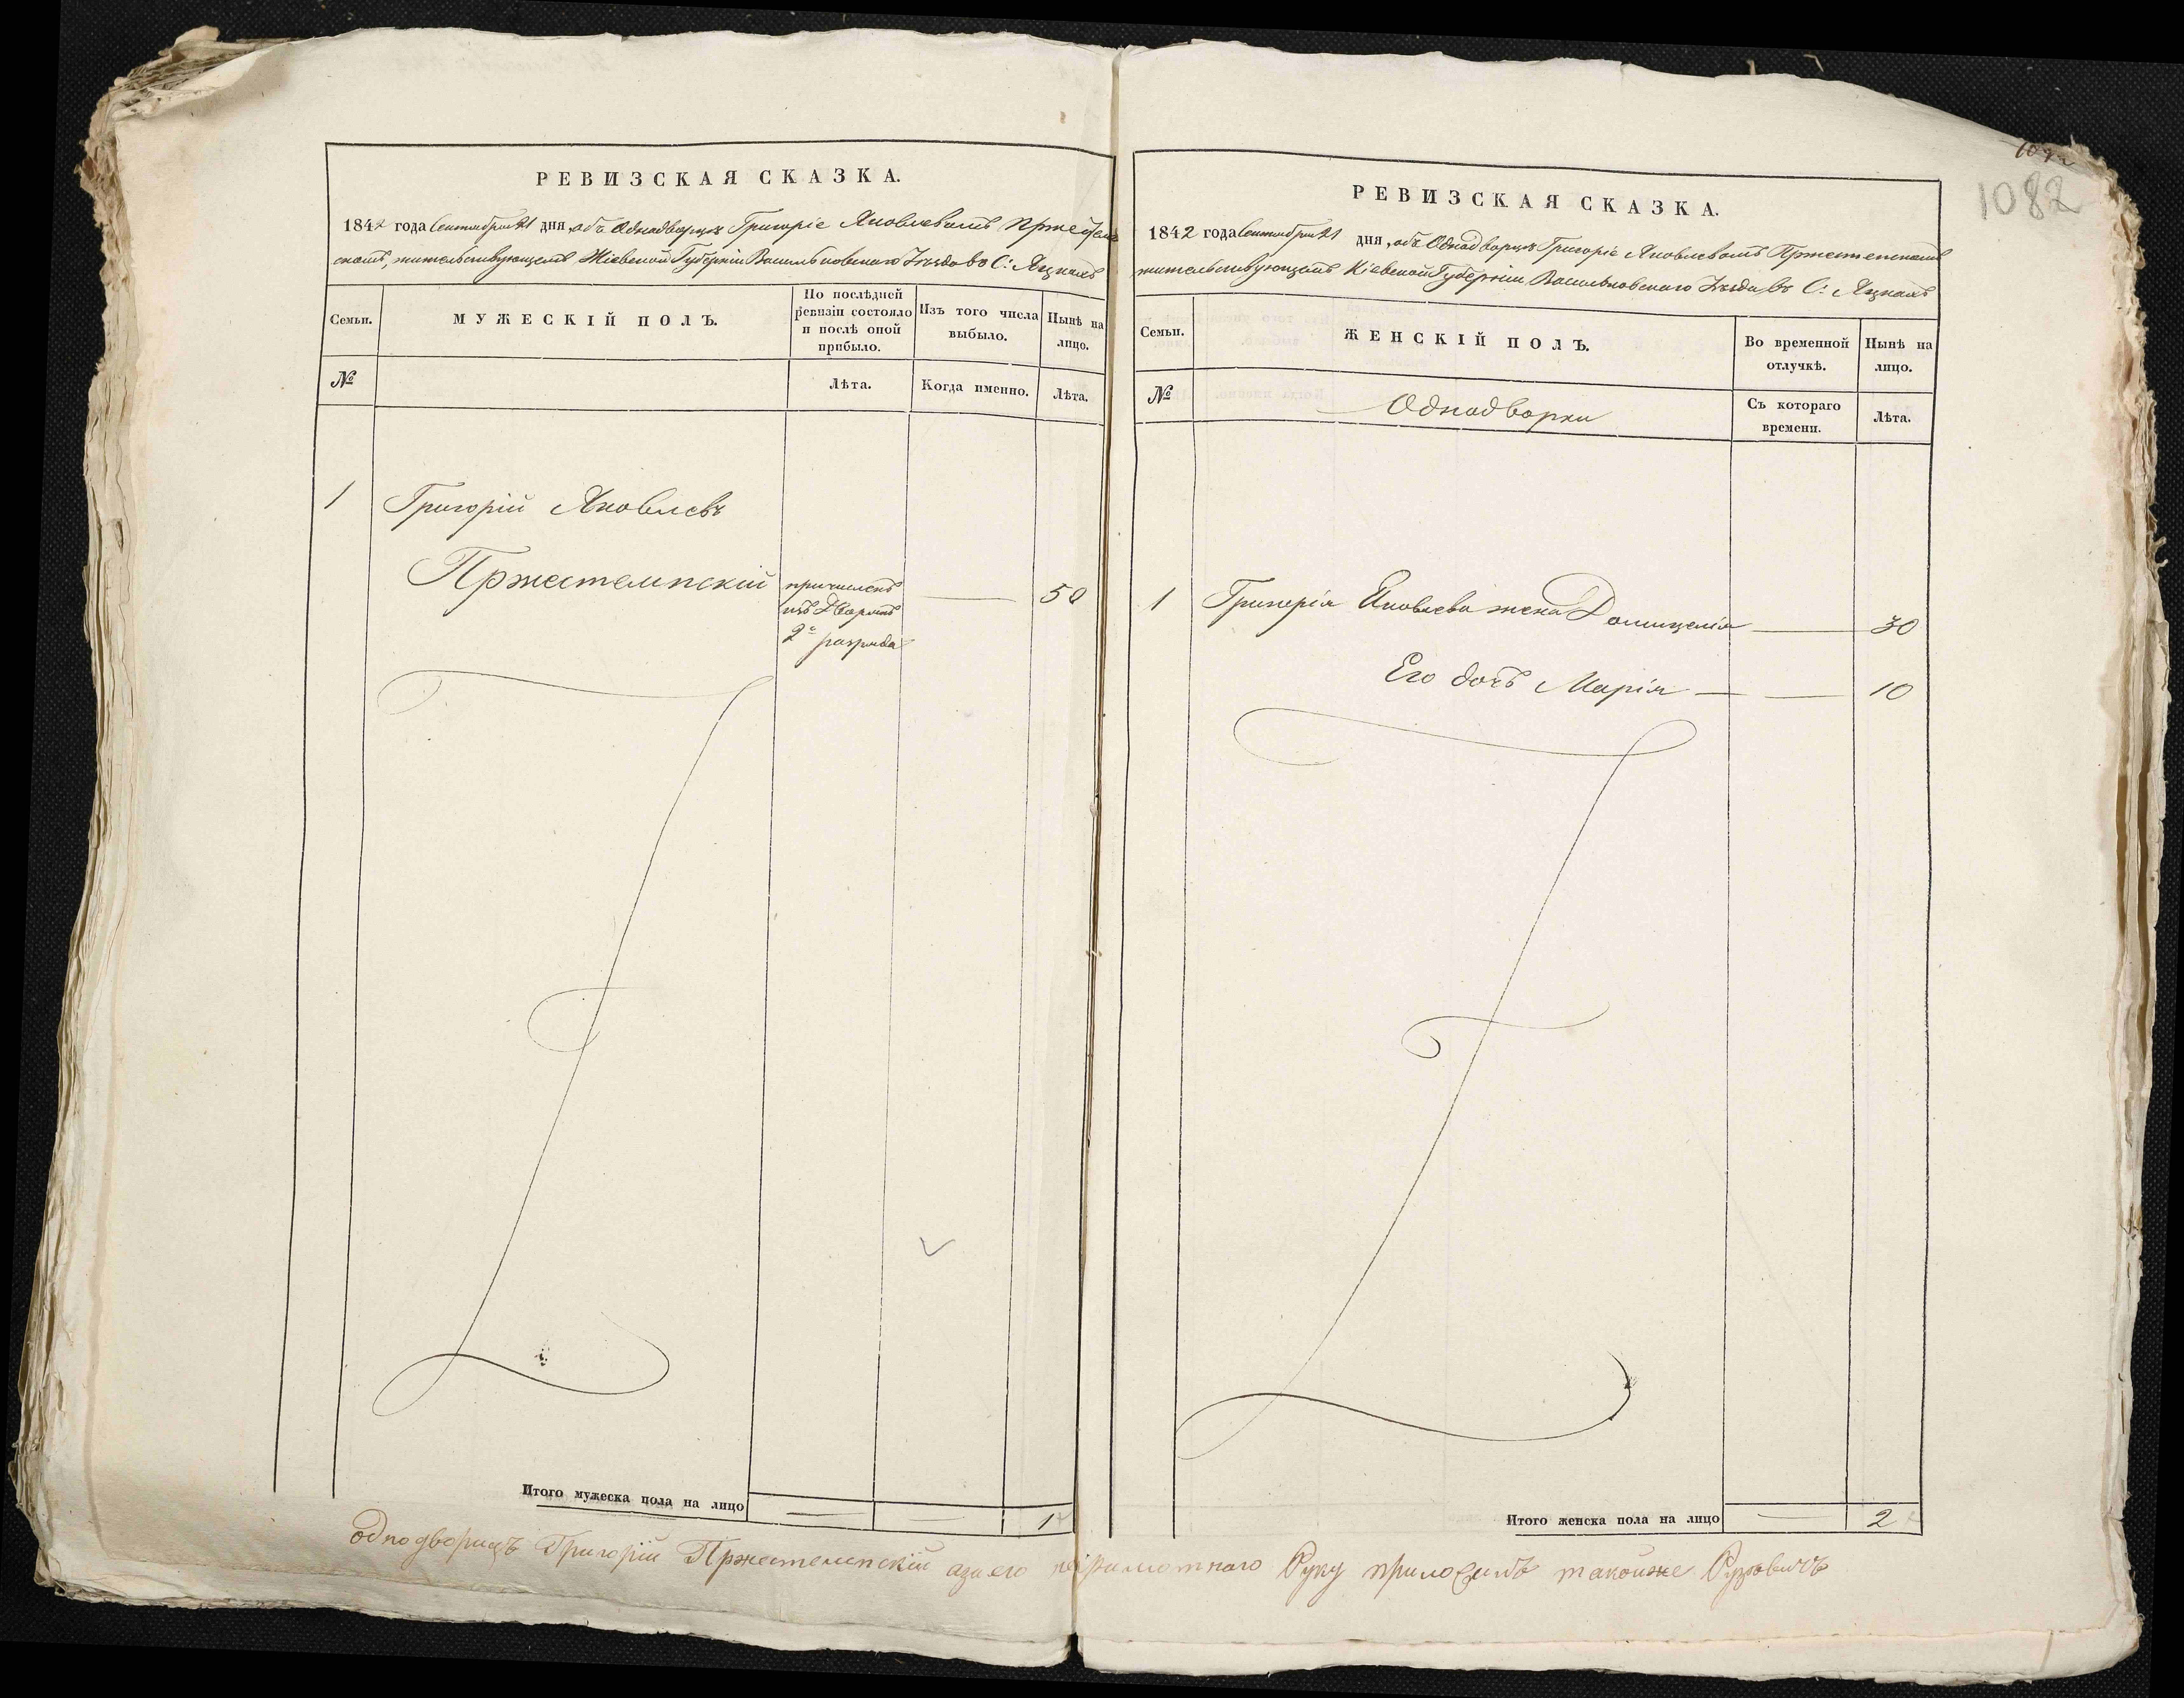 РЕВИЗСКАЯ СКАЗКА.
1842 года Сентября 21 дня, объ Однодворцѣ Григоріе Яковлевомъ Пржестем
скомъ, жительствующемъ Кіевской Губерніи Васильковскаго Уѣзда во С: Яцкахъ
Семьи.
МУЖЕСКІЙ ПОЛЪ.
По послѣдней
ревизіи состояло
и послѣ оной
прибыло.
Изъ того числа
выбыло.
Нынѣ на
лицо.
№
Лѣта.
Когда именно.
Лѣта.
1 Григорій Яковлевъ
Пржестемпскій
причисленъ
изъ Дворянъ
2го разряда
50
Итого мужеска пола на лицо
1
1082
РЕВИЗСКАЯ СКАЗКА.
1842 года Сентября 21 дня, объ Однодворцѣ Григоріе Яковлевомъ Пржестемпскомъ
жительствующемъ Кіевской Губерніи Васильковскаго Уѣзда въ С: Яцкахъ
Семьи.
ЖЕНСКІЙ ПОЛЪ.
Во временной
отлучкѣ.
Нынѣ на
лицо.
№
Однодворки
Съ котораго
времени.
Лѣта.
1 Григорія Яковлева жена Домицелія 30
Его дочь Марія 10
Итого женска пола на лицо
2
однодворецъ Григорій Пржестемпскій азаего неграмотнаго Руку приложилъ такойже